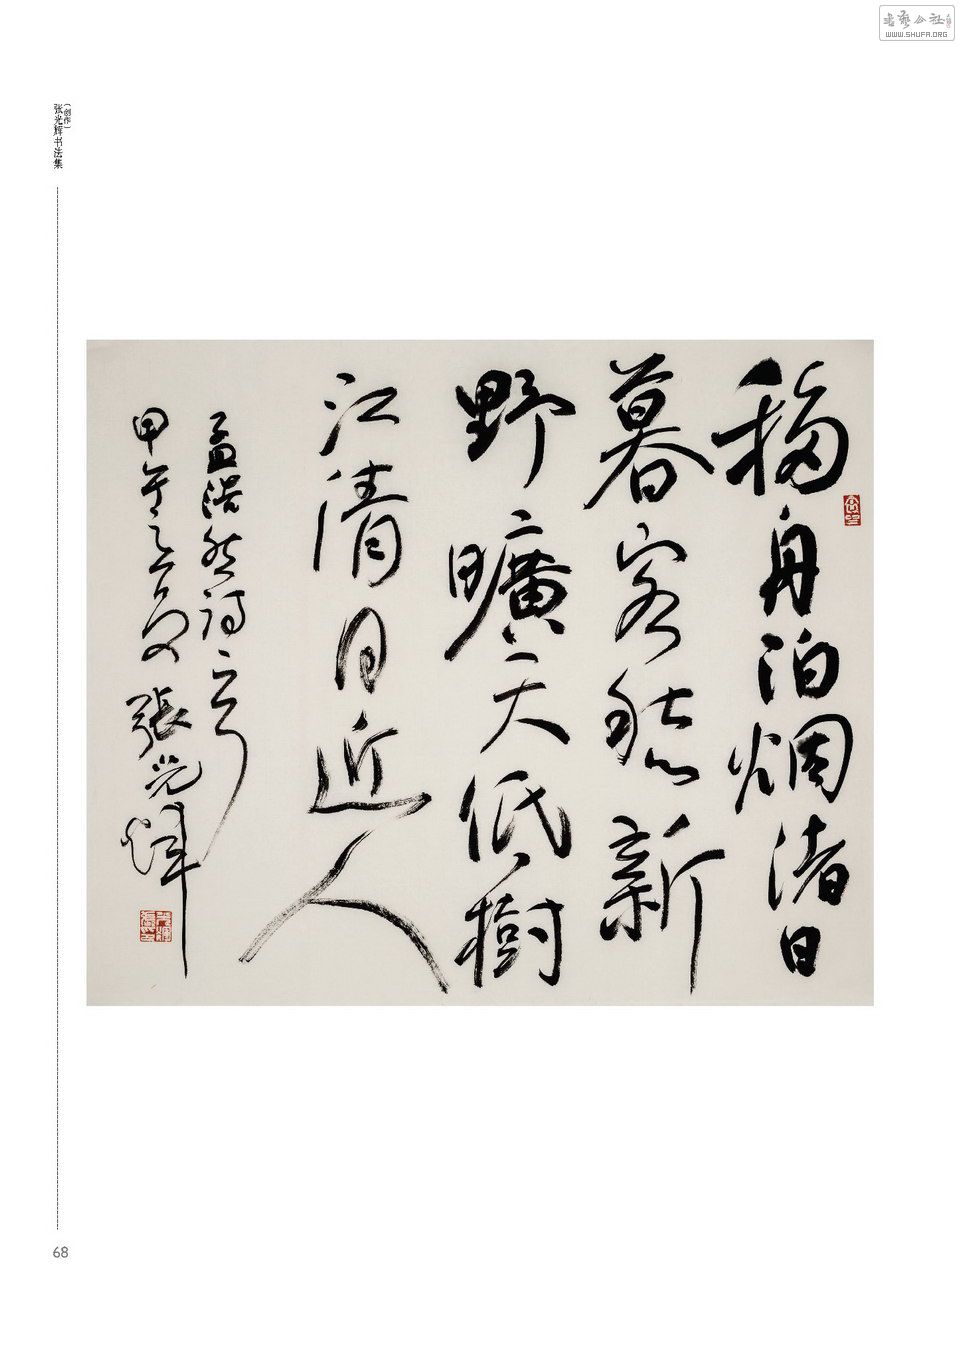 書藝公社
WWW.SHUFA.ORG
(创作)
张光辉书法集
移舟泊烟渚日
暮客愁新
野曠天低樹
江清月近人
孟浩然詩
甲午之夏張光煇
68